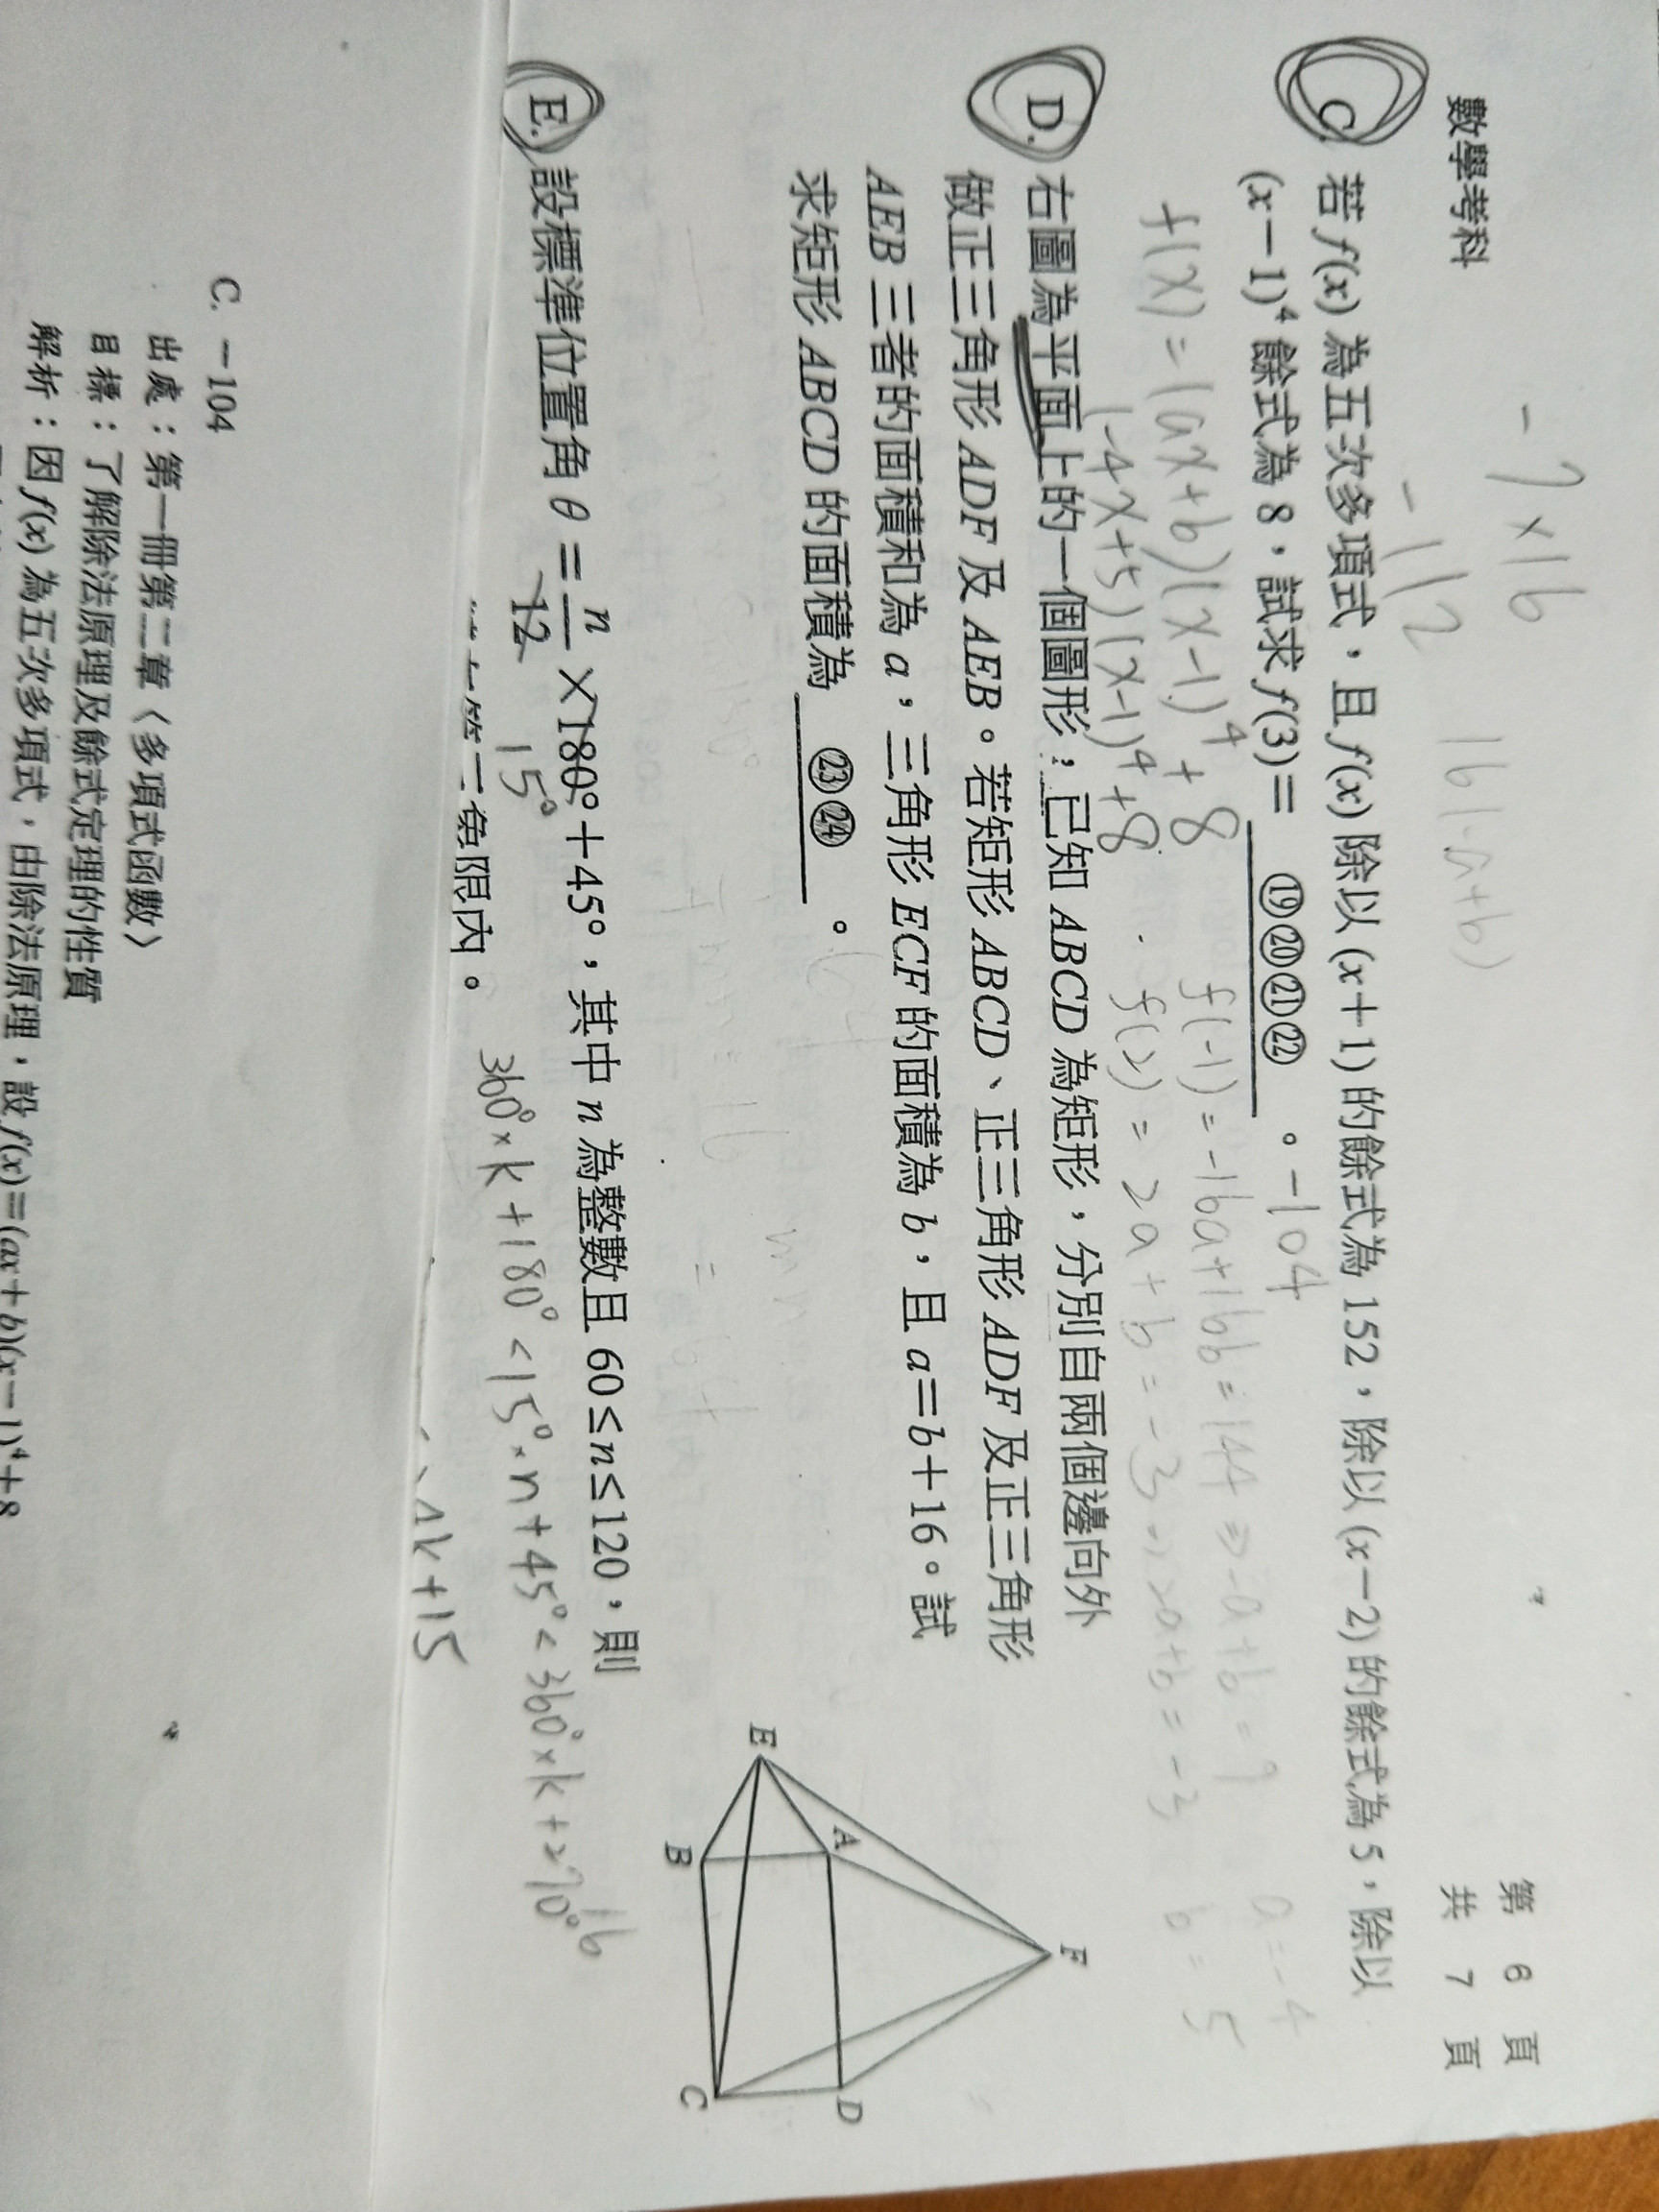 -7×16
-112
16(-a+b)
數學考科
第 6 頁
共 7 頁
C. 若 f(x) 為五次多項式，且 f(x) 除以 (x＋1) 的餘式為 152，除以 (x－2) 的餘式為 5，除以
(x－1)⁴ 餘式為 8，試求 f(3)＝ ⑲⑳㉑㉒ 。 -104
f(x) = (ax+b)(x-1)⁴ + 8
f(-1) = -16a+16b = 144 ⇒ -a+b = 9
a = -4
(-4x+5)(x-1)⁴+8
f(2) = 2a+b = -3 ⇒ 2a+b = -3
b = 5
D. 右圖為平面上的一個圖形；已知 ABCD 為矩形，分別自兩個邊向外
做正三角形 ADF 及 AEB。若矩形 ABCD、正三角形 ADF 及正三角形
AEB 三者的面積和為 a，三角形 ECF 的面積為 b，且 a＝b＋16。試
求矩形 ABCD 的面積為 ㉓㉔ 。
E
A
B
F
C
D
E. 設標準位置角 θ＝n/12×180°＋45°，其中 n 為整數且 60≤n≤120，則
15°
三象限內。
360°×k+180° < 15°·n+45° < 360°×k+270°
16
4k+15
C. －104
出處：第一冊第二章〈多項式函數〉
目標：了解除法原理及餘式定理的性質
解析：因 f(x) 為五次多項式，由除法原理，設 f(x)＝(ax＋b)(x－1)⁴＋8